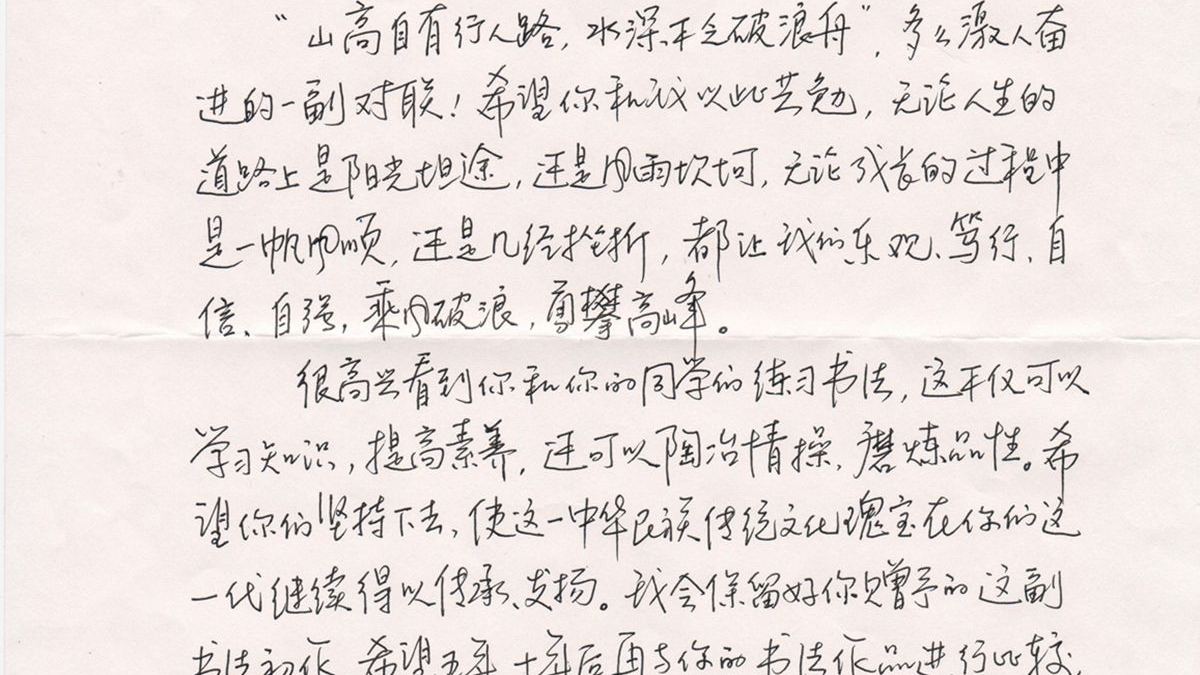 “山高自有行人路，水深不乏破浪舟”，多么激人奋
进的一副对联！希望你和我以此共勉，无论人生的
道路上是阳光坦途，还是风雨坎坷，无论成长的过程中
是一帆风顺，还是几经挫折，都让我们乐观、笃行、自
信、自强，乘风破浪，勇攀高峰。
很高兴看到你和你的同学们练习书法，这不仅可以
学习知识，提高素养，还可以陶冶情操，磨炼品性。希
望你们坚持下去，使这一中华民族传统文化瑰宝在你们这
一代继续得以传承、发扬。我会保留好你赠予的这副
书法初作，希望五年、十年后再与你的书法作品进行比较，